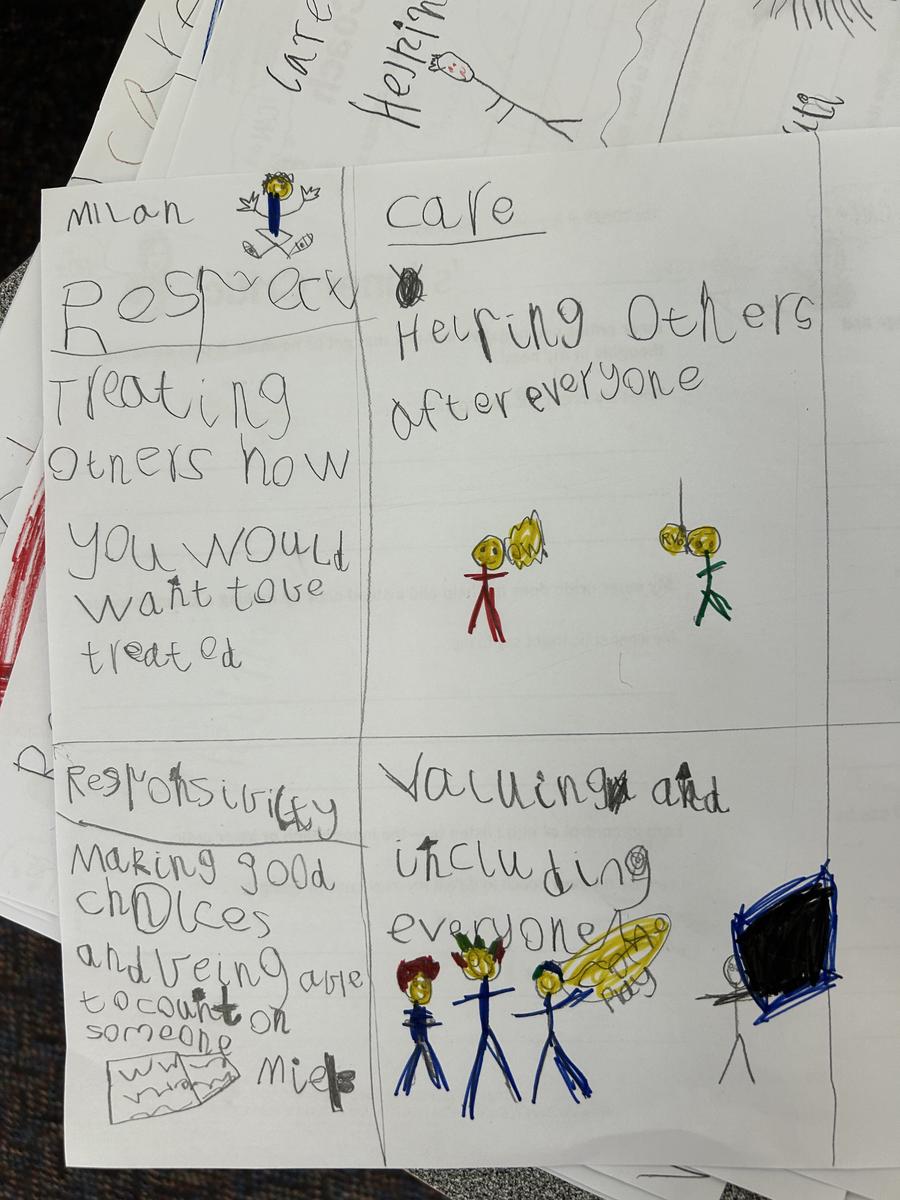 care
Care
Helpin
MILan
Respect
Treating
others how
you would
want to be
treated
care
Helping Others
after everyone
OW
Responsibility
Making good
choices
and being able
to count on
someone
Valuing and
including
everyone
Play